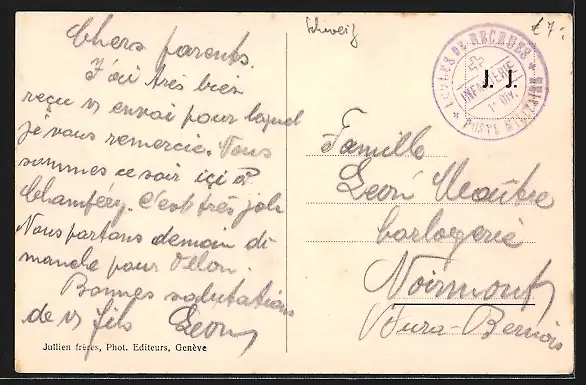 Chers parents.
J'ai très bien
reçu vs envoi pour lequel
je vous remercie. Nous
sommes ce soir içi à
Champéry. C'est très joli
Nous partons demain di
manche pour Ollon.
Bonnes salutations
de vs fils Leon
Jullien frères, Phot. Editeurs, Genève
Schweiz
€ 7.-
ECOLES DE RECRUES
INFANTERIE
1e DIV.
POSTE MILITAIRE
J. J.
Famille
Leon Maître
horlogerie
Noirmont
Jura-Bernois